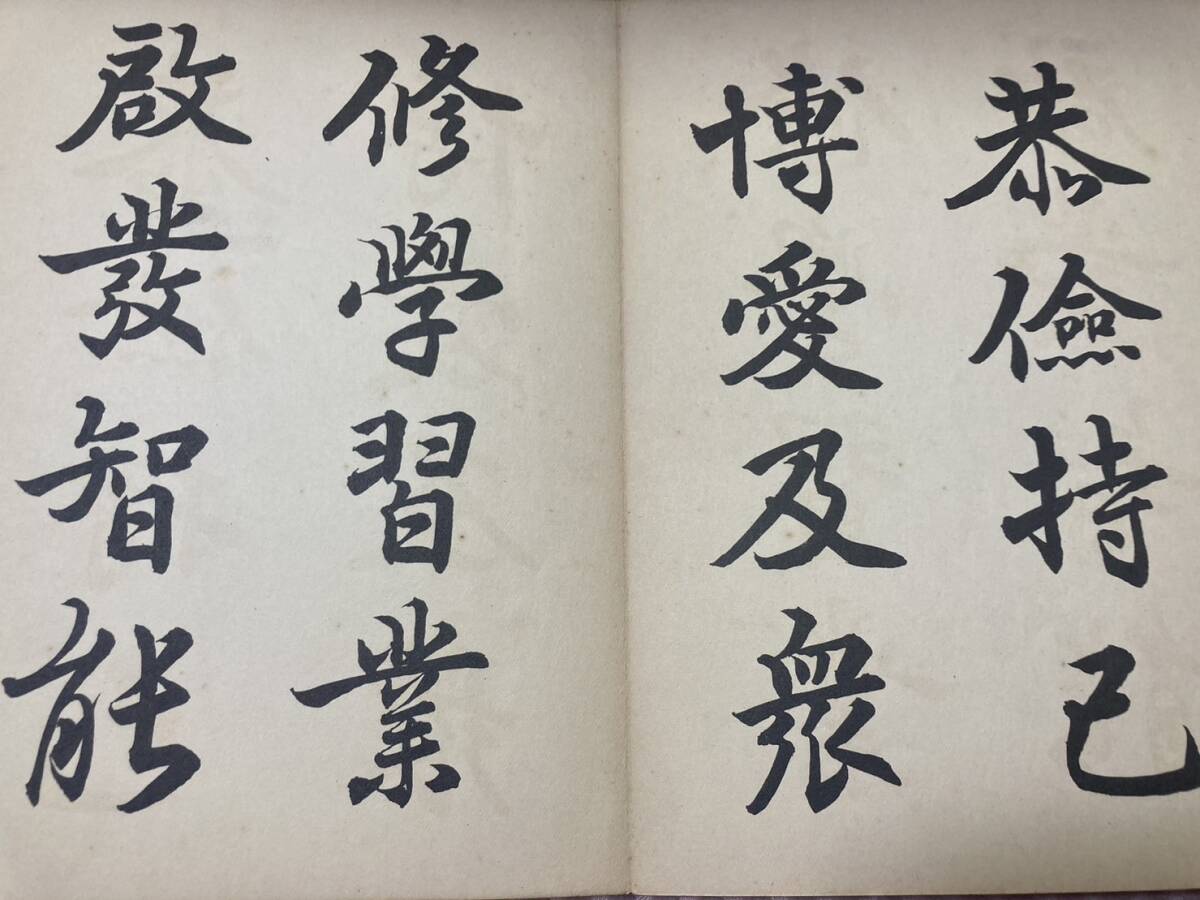 恭儉持己
博愛及衆
修學習業
啟發智能